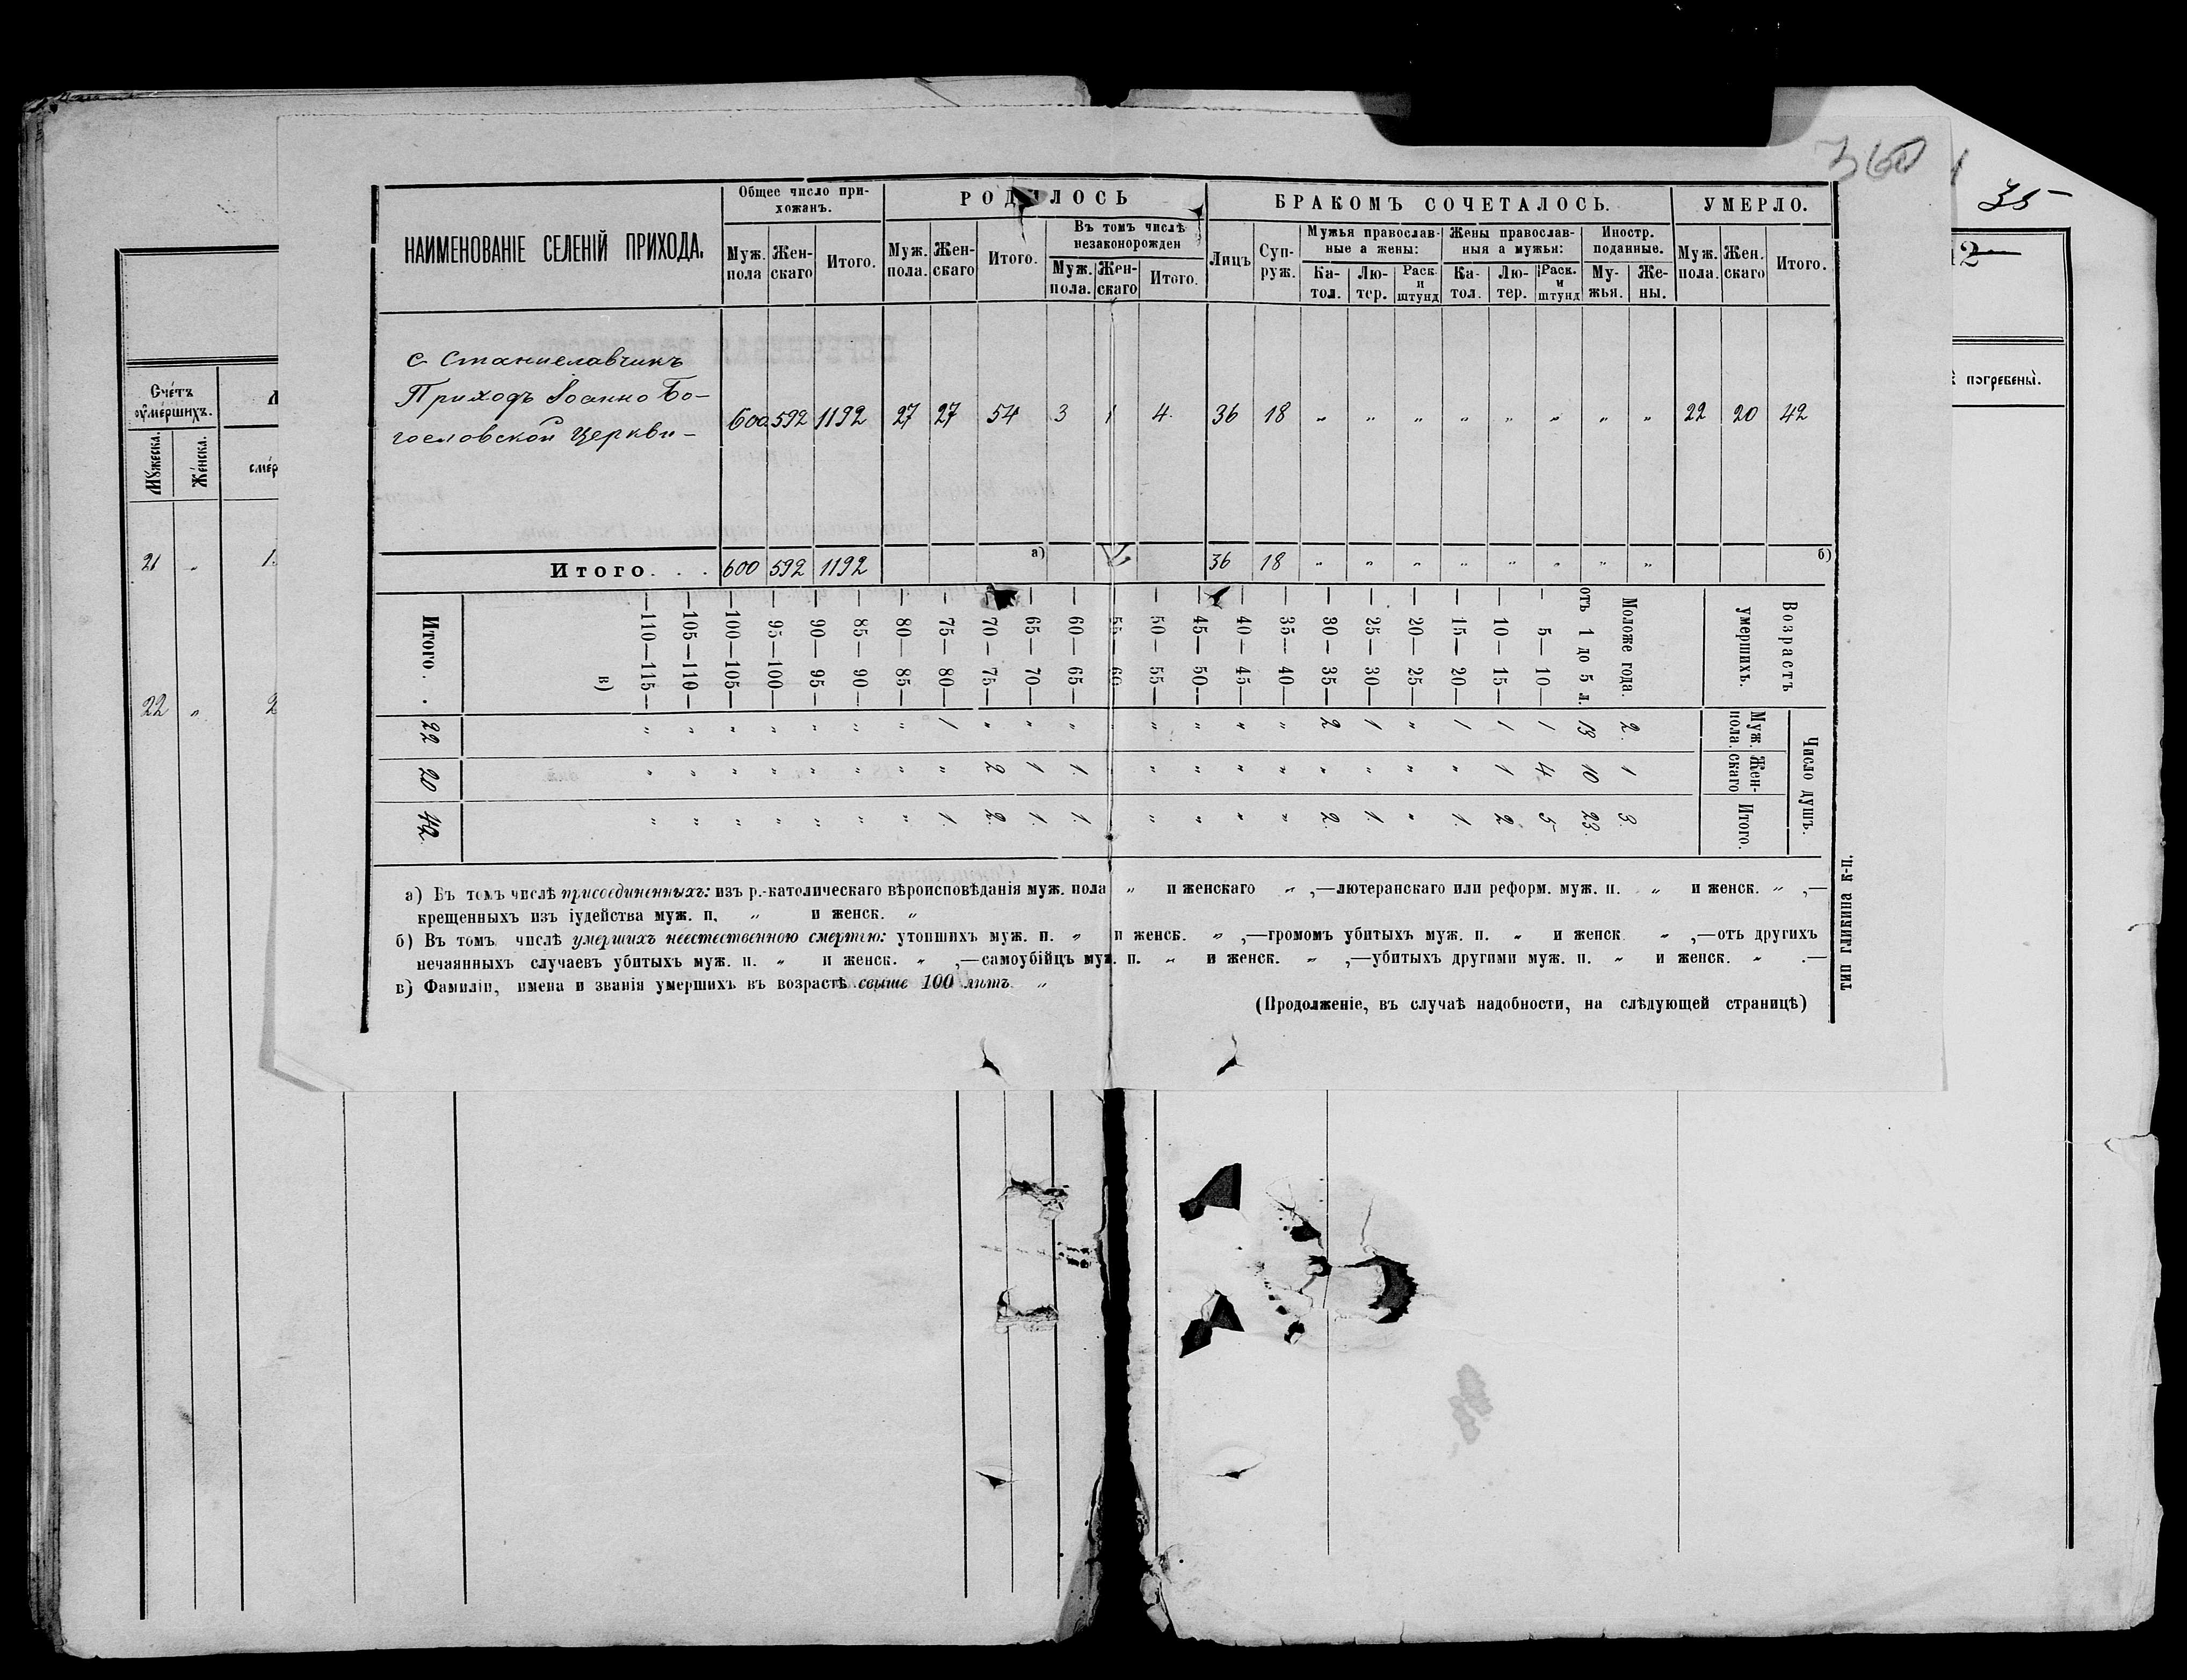 360
35
12
Общее число при-
хожанъ.
РОДИЛОСЬ
БРАКОМЪ СОЧЕТАЛОСЬ.
УМЕРЛО.
НАИМЕНОВАНІЕ СЕЛЕНІЙ ПРИХОДА.
Муж. пола
Жен- скаго
Итого.
Муж. пола.
Жен- скаго
Итого.
Въ томъ числѣ
незаконорожден
Муж. пола.
Жен- скаго
Итого.
Лицъ
Суп- руж.
Мужья православ-
ные а жены:
Ка- тол.
Лю- тер.
Раск. и штунд
Жены православ-
ныя а мужьи:
Ка- тол.
Лю- тер.
Раск. и штунд
Иностр.
поданные.
Му- жья.
Же- ны.
Муж. пола.
Жен. скаго
Итого.
с Станиславчикъ
Приходъ Іоанно Бо-
гословской Церкви –
600 592 1192 27 27 54 3 1 4 36 18 „ „ „ „ „ „ „ „ 22 20 42
а)
б)
Итого. . . 600 592 1192 36 18 „ „ „ „ „ „ „ „
Возрастъ
умершихъ.
Число душъ.
Муж. пола.
Жен- скаго
Итого.
Моложе года. 2. 1 3.
отъ 1 до 5 л. 13 10 23.
— 5— 10— 1 4 5
— 10— 15— 1 1 2
— 15— 20— 1 „ 1.
— 20— 25— „ „ „
— 25— 30— 1 „ 1.
— 30— 35— 2 „ 2.
— 35— 40— „ „ „
— 40— 45— „ „ „
— 45— 50— „ „ „
— 50— 55— „ „ „
— 55— 60—
— 60— 65— „ 1. 1.
— 65— 70— „ 1 1.
— 70— 75— „ 2 2.
— 75— 80— 1 „ 1.
— 80— 85— „ „ „
— 85— 90— „ „ „
— 90— 95— „ „ „
— 95—100— „ „ „
—100—105— „ „ „
—105—110— „ „ „
—110—115— „ „ „
в)
Итого. . 22 20 42
а) Въ томъ числѣ присоединенныхъ: изъ р.-католическаго вѣроисповѣданія муж. пола „ и женскаго „ ,—лютеранскаго или реформ. муж. п. „ и женск. „ ,—
крещенныхъ изъ іудейства муж. п. „ и женск. „
б) Въ томъ числѣ умершихъ неестественною смертію: утопшихъ муж. п. „ и женск. „ ,—громомъ убитыхъ муж. п. „ и женск. „ ,—отъ другихъ
нечаянныхъ случаевъ убитыхъ муж. п. „ и женск. „ ,—самоубійцъ муж. п. „ и женск. „ ,—убитыхъ другими муж. п. „ и женск. „ .—
в) Фамиліи, имена и званія умершихъ въ возрастѣ свыше 100 лѣтъ „
(Продолженіе, въ случаѣ надобности, на слѣдующей страницѣ)
ТИП ГЛИКИНА К-П.
Счетъ
оумершихъ.
Мужеска.
Женска.
21 „
22 „ 2
погребены.